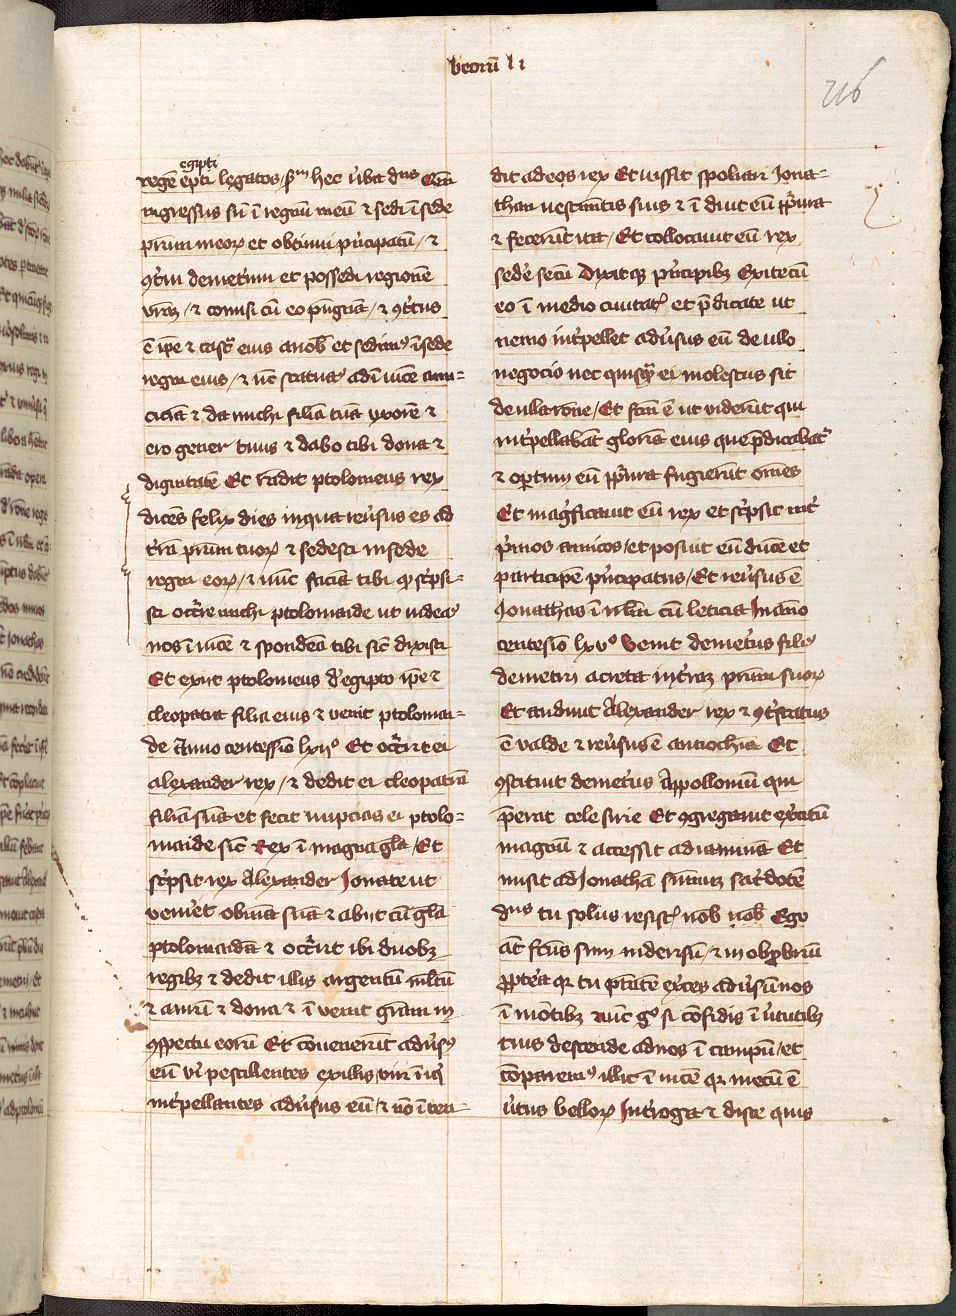 beorū l i
216
egipti
regē epti legatos / sᵐ hec v̾ba dn̄s Qm̄
ingressus sū ī regnū meū ⁊ sedi ī sede
prim̄ meoꝝ et obtinui pͥncipatū / ⁊
ꝯtͥui demetriū et possedi regionē
vrāꝫ / ⁊ comisi cū eo pugnā / ⁊ ꝯtͥtus
ē ip̄e ⁊ castͣ eius a nob̄ et sedimꝰ ī sede
regni eius / ⁊ nc̄ statuaꝰ ad ī uicē ami-
ciciā ⁊ da michi filiā tuā vxorē ⁊
ero gener tuus ⁊ dabo tibi dona ⁊
dignitatē Et rn̄dit ptolomeus rex
dicēs felix dies in qua reu̾sus es ad
tr̄ā prim̄ tuoꝝ ⁊ sedesti in sede
regni eoꝝ / ⁊ nūc faciā tibi qͦ scͥpsi-
sti occ̾re michi ptolomaide ut videaꝰ
nos ī uicē ⁊ spondeā tibi sic̄ dixisti
Et exiit ptolomeus d̾ egipto ip̄e ⁊
cleopatra filia eius ⁊ venit ptolomai-
de Anno centessīo lxiiᵒ Et occ̾rit ei
alexander rex / ⁊ dedit ei cleopatrā
filiā suā et fecit nupcias ei ptolo-
maide sic̄ Rex ī magna gl̄a / Et
scͥpsit rex Alexander Jonate ut
veniret obuiā suā ⁊ abijt cū gl̄a
ptolomaidā ⁊ occ̾rit ibi duobꝫ
regibꝫ ⁊ dedit illis argentū ml̄tū
⁊ aurū ⁊ dona ⁊ ī venit grām in
ꝯspectu eorū Et conuenerūt adu̾sꝰ
eū vͥ pestilentes ex illis, viri īiqͥ
int̾pellantes adu̾sus eū / ⁊ nō ī ten-
dit ad eos rex Et iussit spoliari Jona-
than uestimtis suis ⁊ ī duit eū p̲p̲ura
⁊ fecerūt ita / Et collocauit eū rex
sede̾ secū Dixitqꝫ pͥncipibꝫ Exite cū
eo ī medio ciuitatꝭ et p̄dicate ut
nemo int̾pellet adu̾sus eū de ullo
negocio nec quisqͣ ei molestus sit
de ulla rōne / Et fcm̄ ē ut viderūt qui
int̾pellabāt gloriā eius que p̄dicabat̾
⁊ op̲tum eū p̲p̲ura fugierūt om̄es
Et mag̾ficauit eū rex et scͥpsit int̾
pͥmos amicos / et posuit eū ducē et
participē pͥncipatus / Et reu̾sus ē
Jonathas ī irl̄m cū leticia In anno
centesīo lxvᵒ Venit demetͥus filiꝰ
demetri a creta in tr̄aꝫ prim̄ suoꝝ
Et audiuit Alexander rex ⁊ ꝯtͥstatus
ē valde ⁊ reu̾sus ē antiochiā Et
ꝯstituit demetͥus Appolloniū qui
p̄erat cele sirie Et ꝯgregauit ex̾citū
magnū ⁊ accessit ad iaminā Et
misit ad Jonathā summū sac̾dotē
dn̄s tu solus resistꝭ nob̄ nob̄ Ego
aūt fc̄us sum in derisū / ⁊ in obp̲briū
p̲p̲t̾ea qr tu ptātē ex̾ces adu̾sū nos
ī mōtibꝫ nūc gͦ si cōfidis ī u̾tutibꝫ
tuis descende ad nos ī campū / et
cōparemꝰ illic ī uicē qr mecū ē
u̾tus belloꝝ Int̾roga ⁊ disce quis